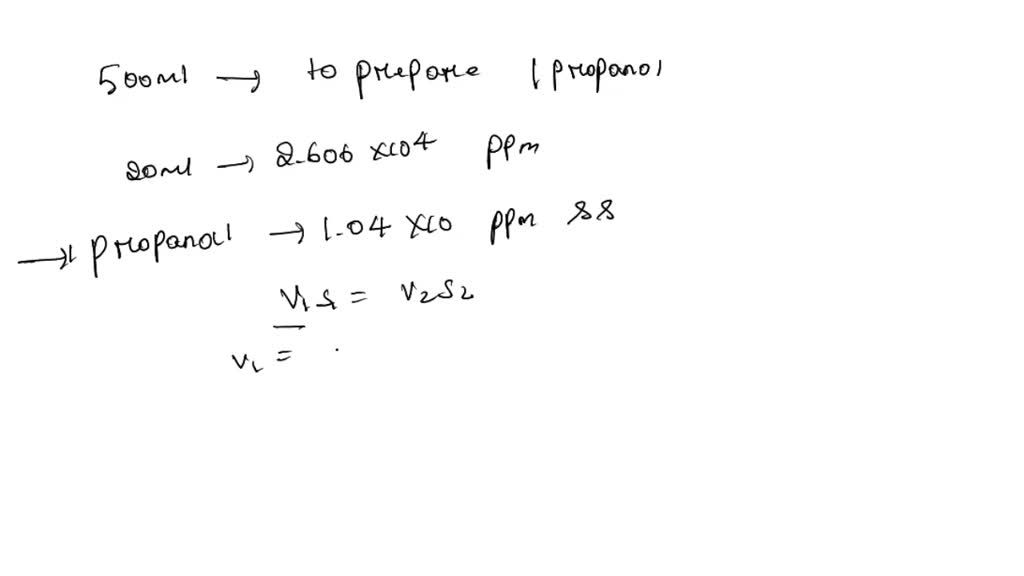 500ml → to prepare 1 propanol
20ml → 2.606 x10^4 ppm
→ 1 propanol → 1.04 x10 ppm 88
V1 S1 = V2 S2
V1 = .